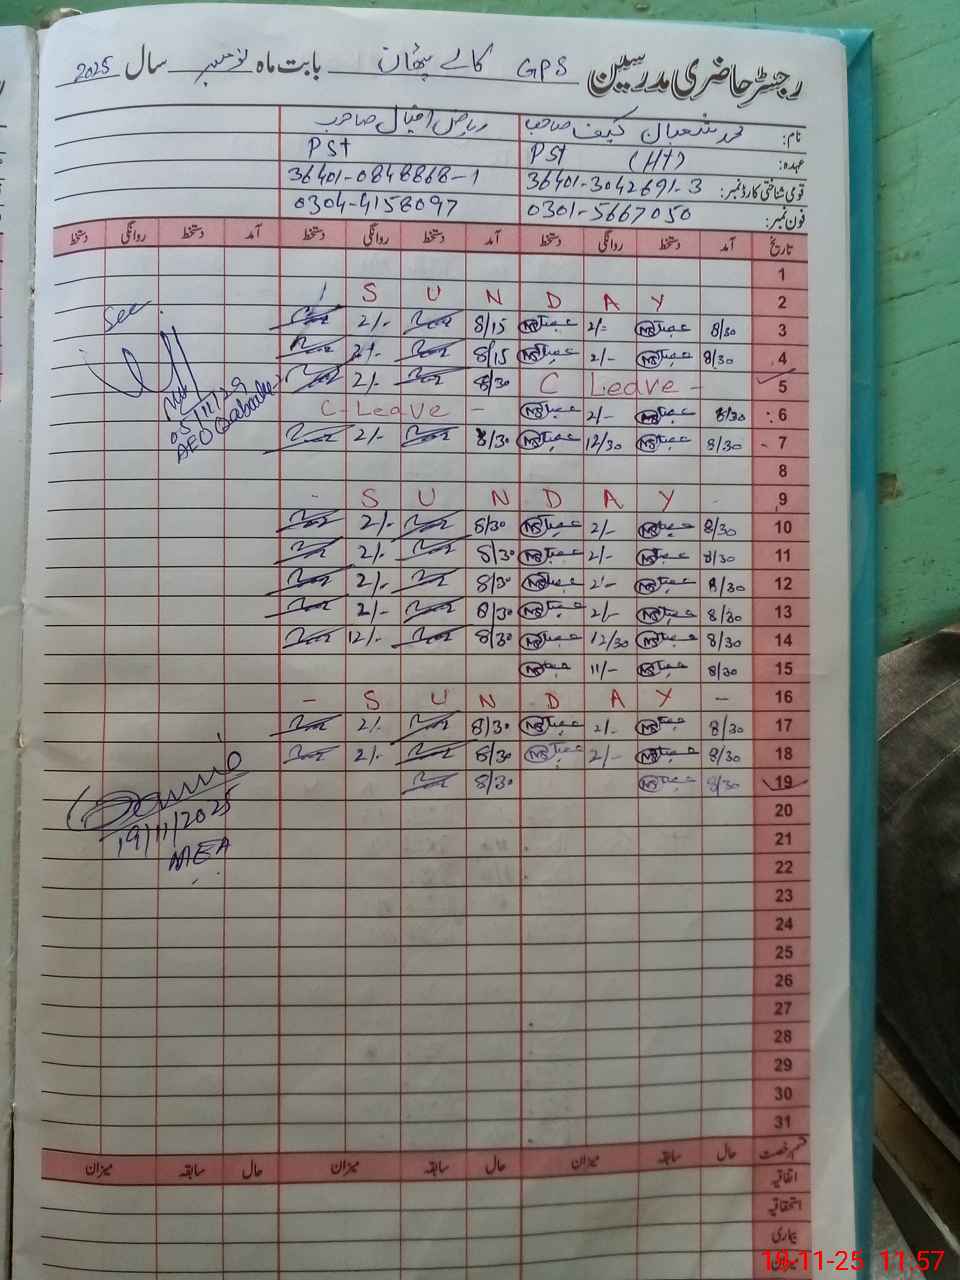 رجسٹر حاضری مدرسین GPS کالے پٹھان بابت ماہ نومبر سال 2025
نام: محمد شعبان کیف صاحب ریاض اقبال صاحب
عہدہ: PST (HT) PST
قومی شناختی کارڈ نمبر: 36401-3042691-3 36401-0848868-1
فون نمبر: 0301-5667050 0304-4158097
تاریخ آمد دستخط روانگی دستخط آمد دستخط روانگی دستخط آمد دستخط روانگی دستخط
1
2 S U N D A Y
3 8/30 2/- 8/15 2/-
4 8/30 2/- 8/15 2/-
5 C Leave - 8/30 2/-
6 8/30 2/- C-Leave -
7 8/30 12/30 8/30 2/-
8
9 S U N D A Y
10 8/30 2/- 8/30 2/-
11 8/30 2/- 8/30 2/-
12 8/30 2/- 8/30 2/-
13 8/30 2/- 8/30 2/-
14 8/30 12/30 8/30 12/-
15 8/30 11/-
16 - S U N D A Y -
17 8/30 2/- 8/30 2/-
18 8/30 2/- 8/30 2/-
19 8/30 8/30
20
21
22
23
24
25
26
27
28
29
30
31
See
05/11/25
AEO
19/11/2025
MEA
قسم رخصت حال سابقہ میزان حال سابقہ میزان حال سابقہ میزان
اتفاقیہ
استحقاقیہ
بیماری
میزان
19-11-25 11:57